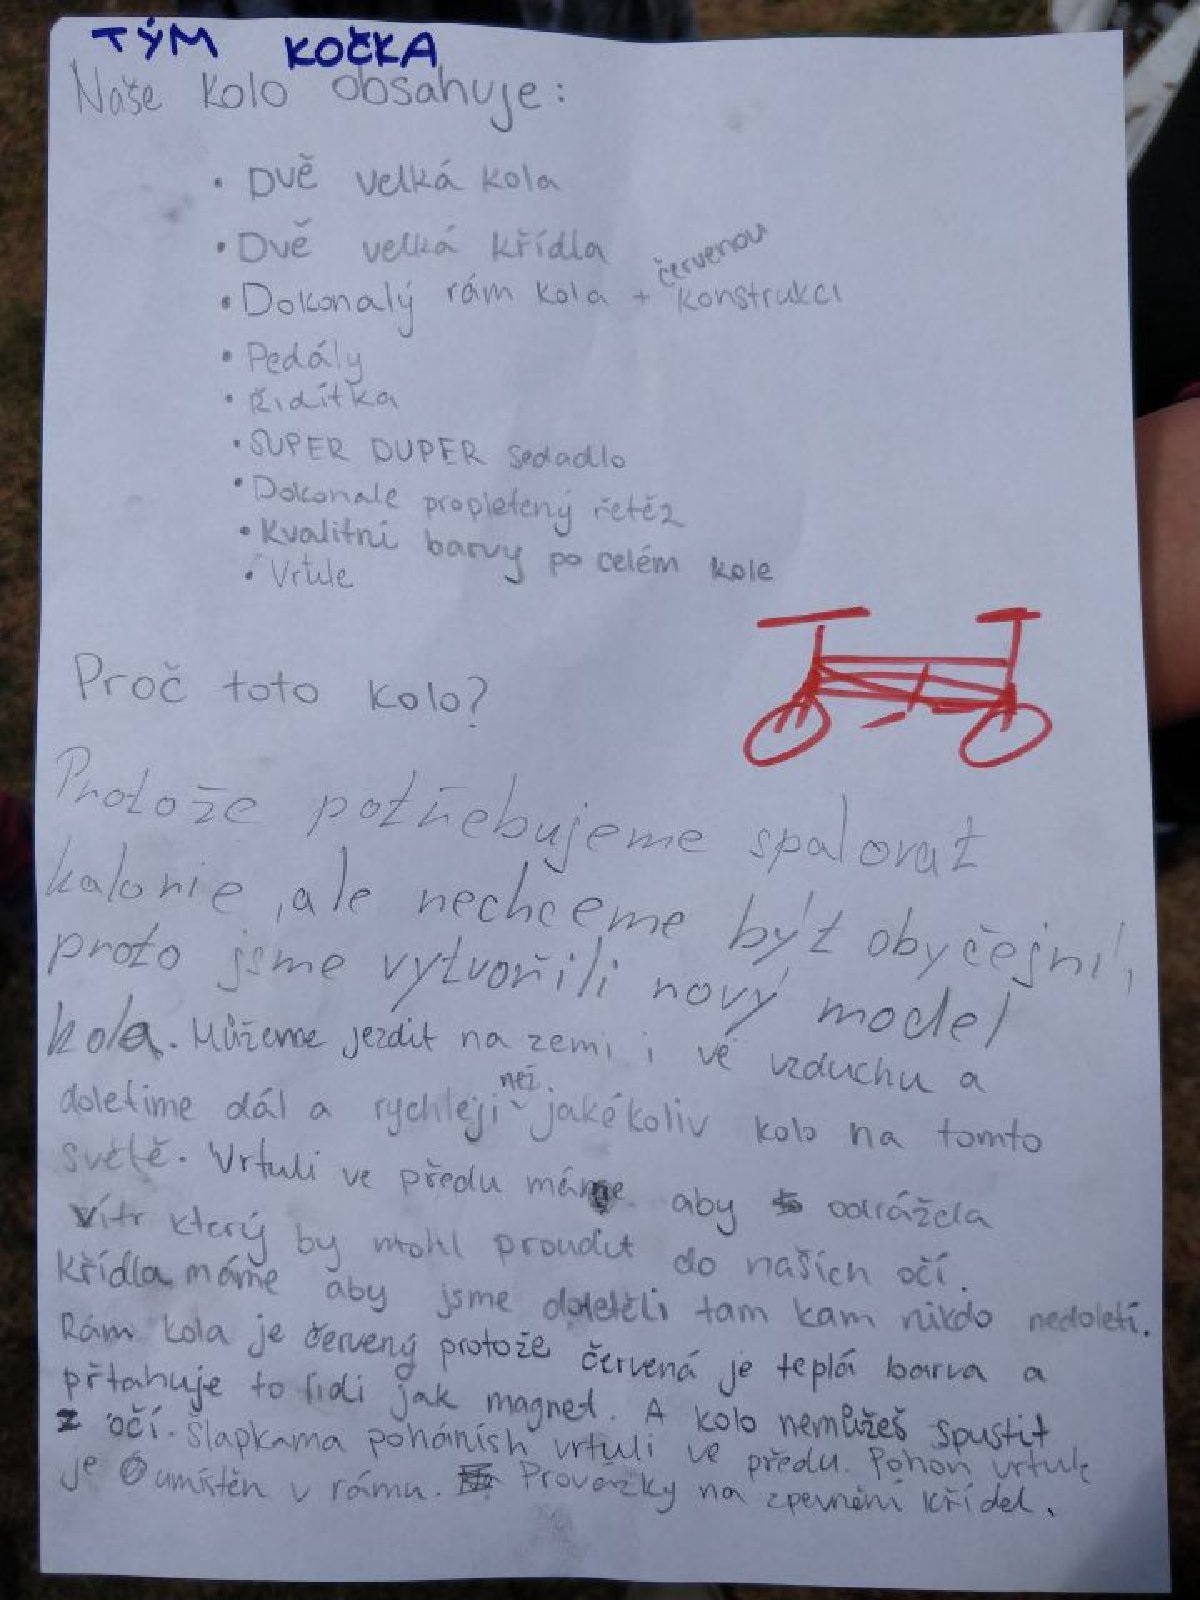 TÝM KOČKA
Naše kolo obsahuje:
• Dvě velká kola
• Dvě velká křídla
červenou
• Dokonalý rám kola + konstrukci
• Pedály
• Řidítka
• SUPER DUPER sedadlo
• Dokonale propletený řetěz
• Kvalitní barvy po celém kole
• Vrtule
Proč toto kolo?
Protože potřebujeme spalovat
kalorie, ale nechceme být obyčejní,
proto jsme vytvořili nový model
kola. Můžeme jezdit na zemi i ve vzduchu a
než
doletíme dál a rychleji jakékoliv kolo na tomto
světě. Vrtuli ve předu máme aby odrážela
vítr který by mohl proudit do našich očí.
Křídla máme aby jsme doletěli tam kam nikdo nedoletí.
Rám kola je červený protože červená je teplá barva a
přtahuje to lidi jak magnet. A kolo nemůžeš spustit
z očí. Šlapkama poháníš vrtuli ve předu. Pohon vrtule
je umístěn v rámu. Provázky na zpevnění křídel.